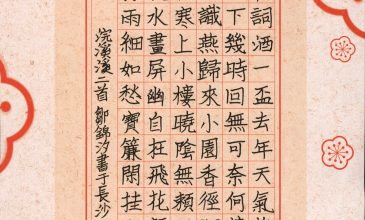 詞酒一盃去年天氣
下幾時回無可奈何
識燕歸來小園香徑
寒上小樓曉陰無賴
水畫屏幽自在飛花
雨細如愁寶簾閑挂
浣溪二首 鄒錦汐書于長沙